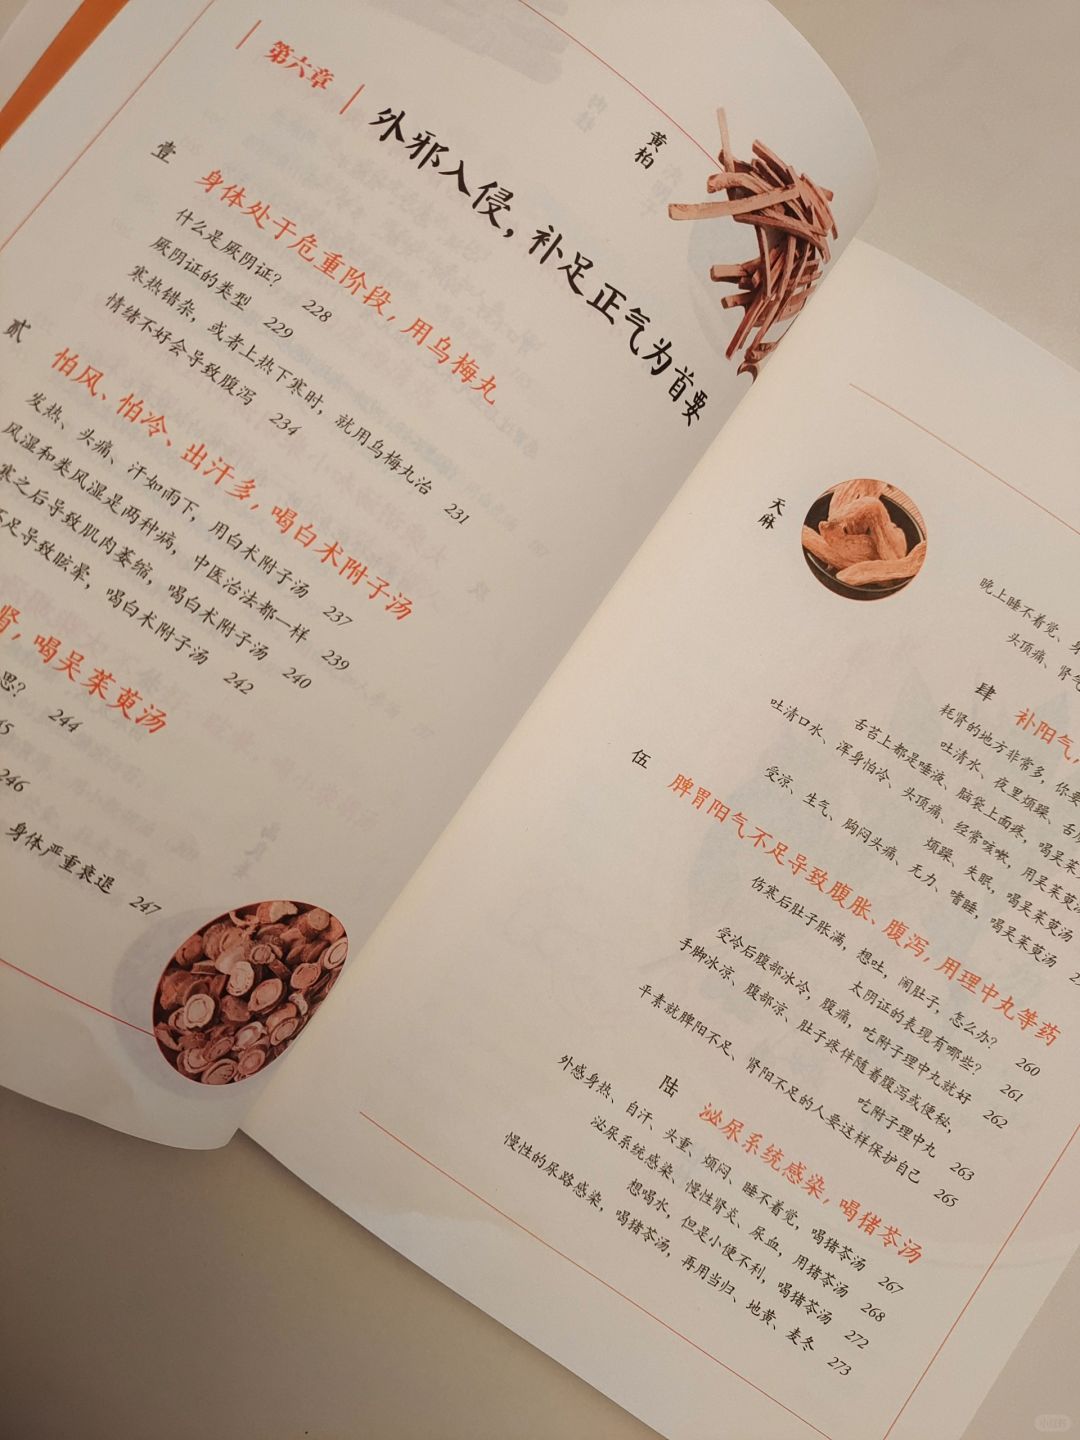 第六章
外邪入侵，补足正气为首要
黄柏
壹
身体处于危重阶段，用乌梅丸
什么是厥阴证？ 228
厥阴证的类型 229
寒热错杂，或者上热下寒时，就用乌梅丸治 231
情绪不好会导致腹泻 234
贰
怕风、怕冷、出汗多，喝白术附子汤
发热、头痛、汗如雨下，用白术附子汤 237
风湿和类风湿是两种病，中医治法都一样 239
寒之后导致肌肉萎缩，喝白术附子汤 240
足导致眩晕，喝白术附子汤 242
肾，喝吴茱萸汤
思？ 244
45
246
身体严重衰退 247
天麻
晚上睡不着觉、身
头顶痛、肾气
肆
补阳气，
耗肾的地方非常多，你要
吐清水、夜里烦躁、舌
舌苔上都是唾液、脑袋上面疼，喝吴茱
吐清口水、浑身怕冷、头顶痛、经常咳嗽，用吴茱萸
烦躁、失眠，喝吴茱萸汤
受凉、生气、胸闷头痛、无力、嗜睡，喝吴茱萸汤
伍
脾胃阳气不足导致腹胀、腹泻，用理中丸等药
伤寒后肚子胀满，想吐，闹肚子，怎么办？ 260
太阴证的表现有哪些？ 261
受冷后腹部冰冷，腹痛，吃附子理中丸就好 262
手脚冰凉、腹部凉、肚子疼伴随着腹泻或便秘，
吃附子理中丸 263
平素就脾阳不足、肾阳不足的人要这样保护自己 265
陆
泌尿系统感染，喝猪苓汤
外感身热、自汗、头重、烦闷、睡不着觉，喝猪苓汤 267
泌尿系统感染、慢性肾炎、尿血，用猪苓汤 268
想喝水，但是小便不利，喝猪苓汤 272
慢性的尿路感染，喝猪苓汤，再用当归、地黄、麦冬 273
小红书